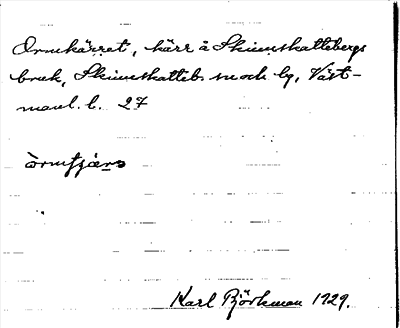 Ormkärret, kärr å Skinnskattebergs
bruk, Skinnskatteb. sn och by, Väst-
manl. l. 27
Karl Björkman 1929.